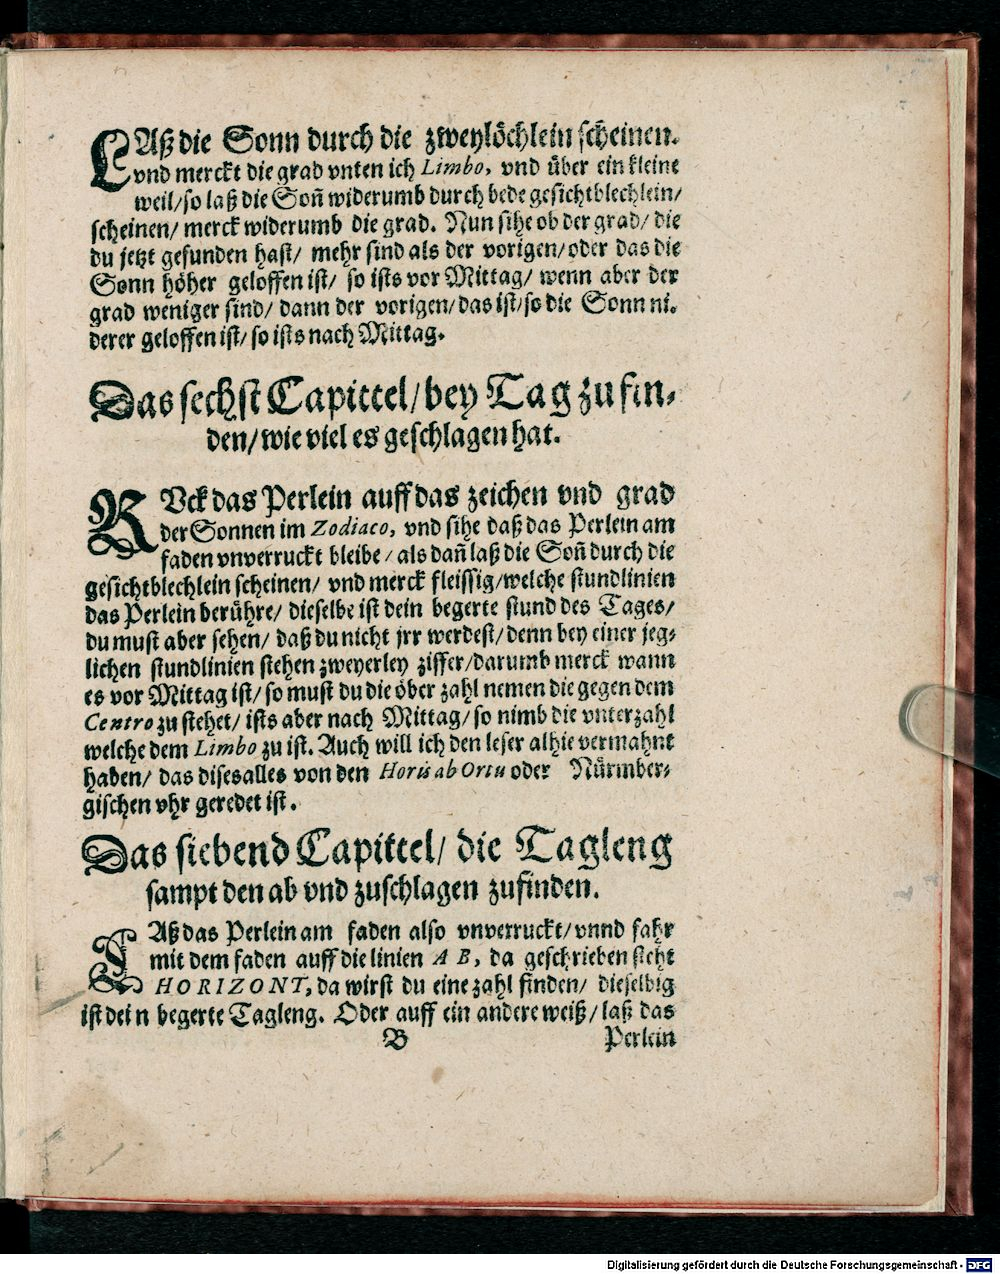 LAß die Sonn durch die zweylöchlein scheinen.
vnd merckt die grad vnten ich Limbo, vnd über ein kleine
weil/so laß die Soñ widerumb durch bede gesichtblechlein/
scheinen/ merck widerumb die grad. Nun sihe ob der grad/ die
du jetzt gefunden hast/ mehr sind als der vorigen/oder das die
Sonn höher geloffen ist/ so ists vor Mittag/ wenn aber der
grad weniger sind/ dann der vorigen/das ist/so die Sonn ni.
derer geloffen ist/ so ists nach Mittag.
Das sechst Capittel/bey Tag zu fin-
den/wie viel es geschlagen hat.
RVck das Perlein auff das zeichen vnd grad
der Sonnen im Zodiaco, vnd sihe daß das Perlein am
faden vnverruckt bleibe/ als dañ laß die Soñ durch die
gesichtblechlein scheinen/ vnd merck fleissig/welche stundlinien
das Perlein berühre/ dieselbe ist dein begerte stund des Tages/
du must aber sehen/ daß du nicht jrr werdest/denn bey einer jeg-
lichen stundlinien stehen zweyerley ziffer/darumb merck wann
es vor Mittag ist/so must du die öber zahl nemen die gegen dem
Centro zu stehet/ ists aber nach Mittag/so nimb die vnterzahl
welche dem Limbo zu ist. Auch will ich den leser alhie vermahnt
haben/ das disesalles von den Horis ab Ortu oder Nürmber-
gischen vhr geredet ist.
Das siebend Capittel/ die Tagleng
sampt den ab vnd zuschlagen zufinden.
LAß das Perlein am faden also vnverruckt/vnnd fahr
mit dem faden auff die linien A B, da geschrieben steht
HORIZONT, da wirst du eine zahl finden/ dieselbig
ist dein begerte Tagleng. Oder auff ein andere weiß/laß das
B Perlein
Digitalisierung gefördert durch die Deutsche Forschungsgemeinschaft - DFG